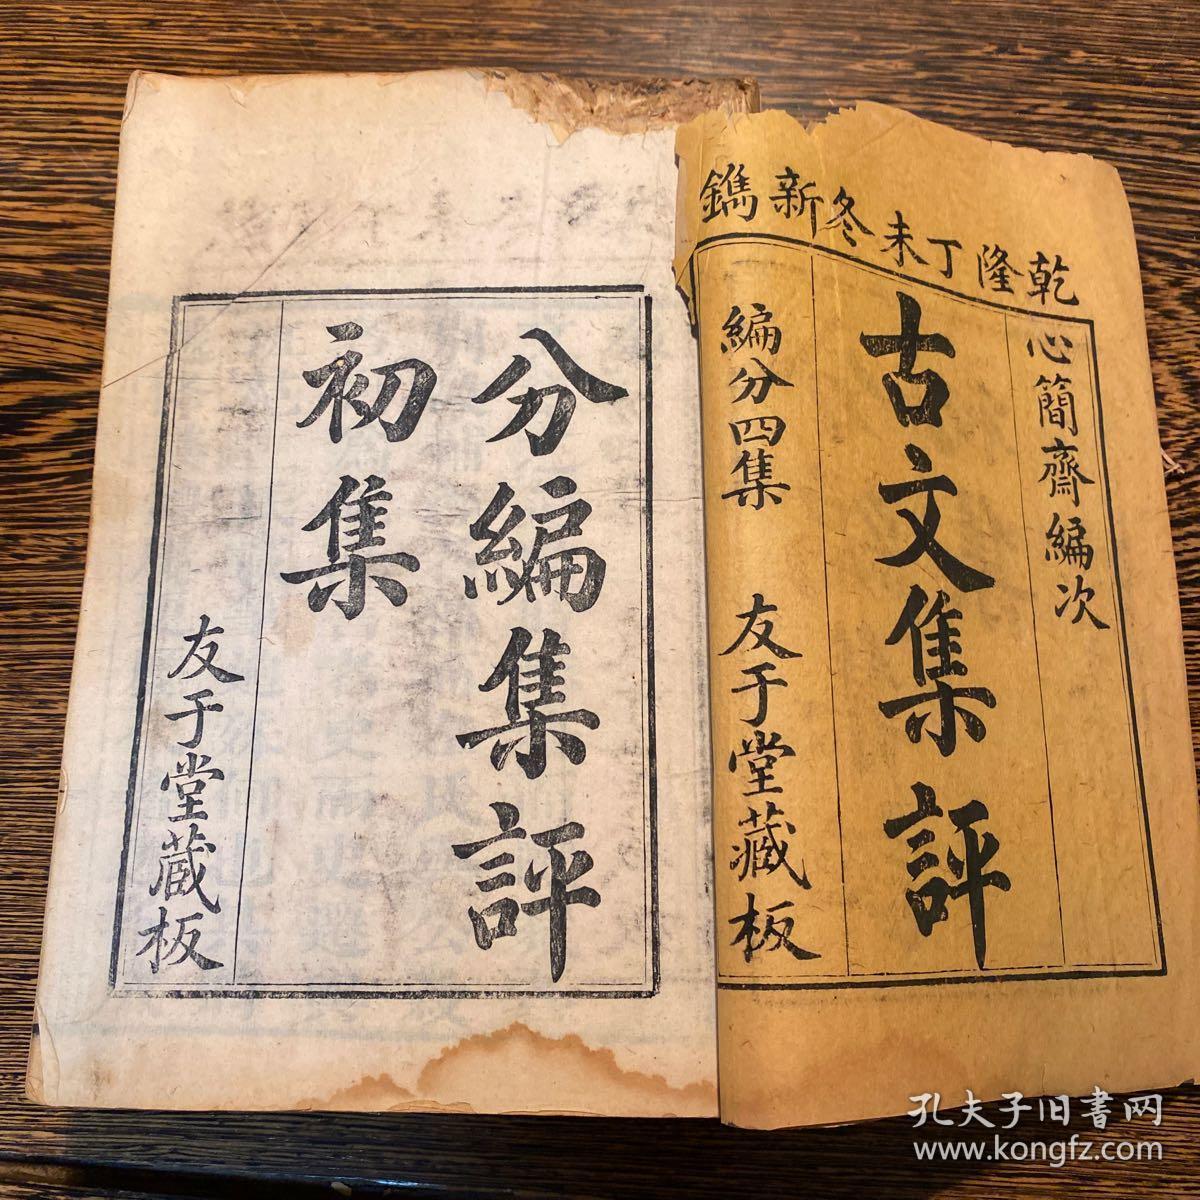 乾隆丁未冬新鐫
心簡齋編次
古文集評
編分四集
友于堂藏板
分編集評
初集
友于堂藏板
孔夫子旧書网
www.kongfz.com